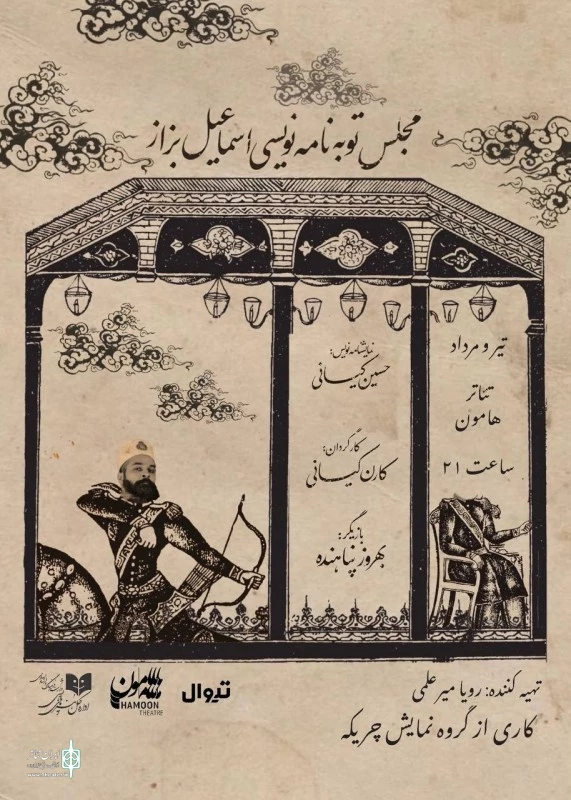 مجلس توبه نامه نویسی اسماعیل بزاز
تیر و مرداد
تئاتر
هامون
ساعت ۲۱
نمایشنامه نویس:
حسین کیانی
کارگردان:
کارن کیانی
بازیگر:
بهروز پناهنده
تهیه کننده: رویا میرعلمی
کاری از گروه نمایش چریکه
تیوال
هامون
HAMOON
THEATRE